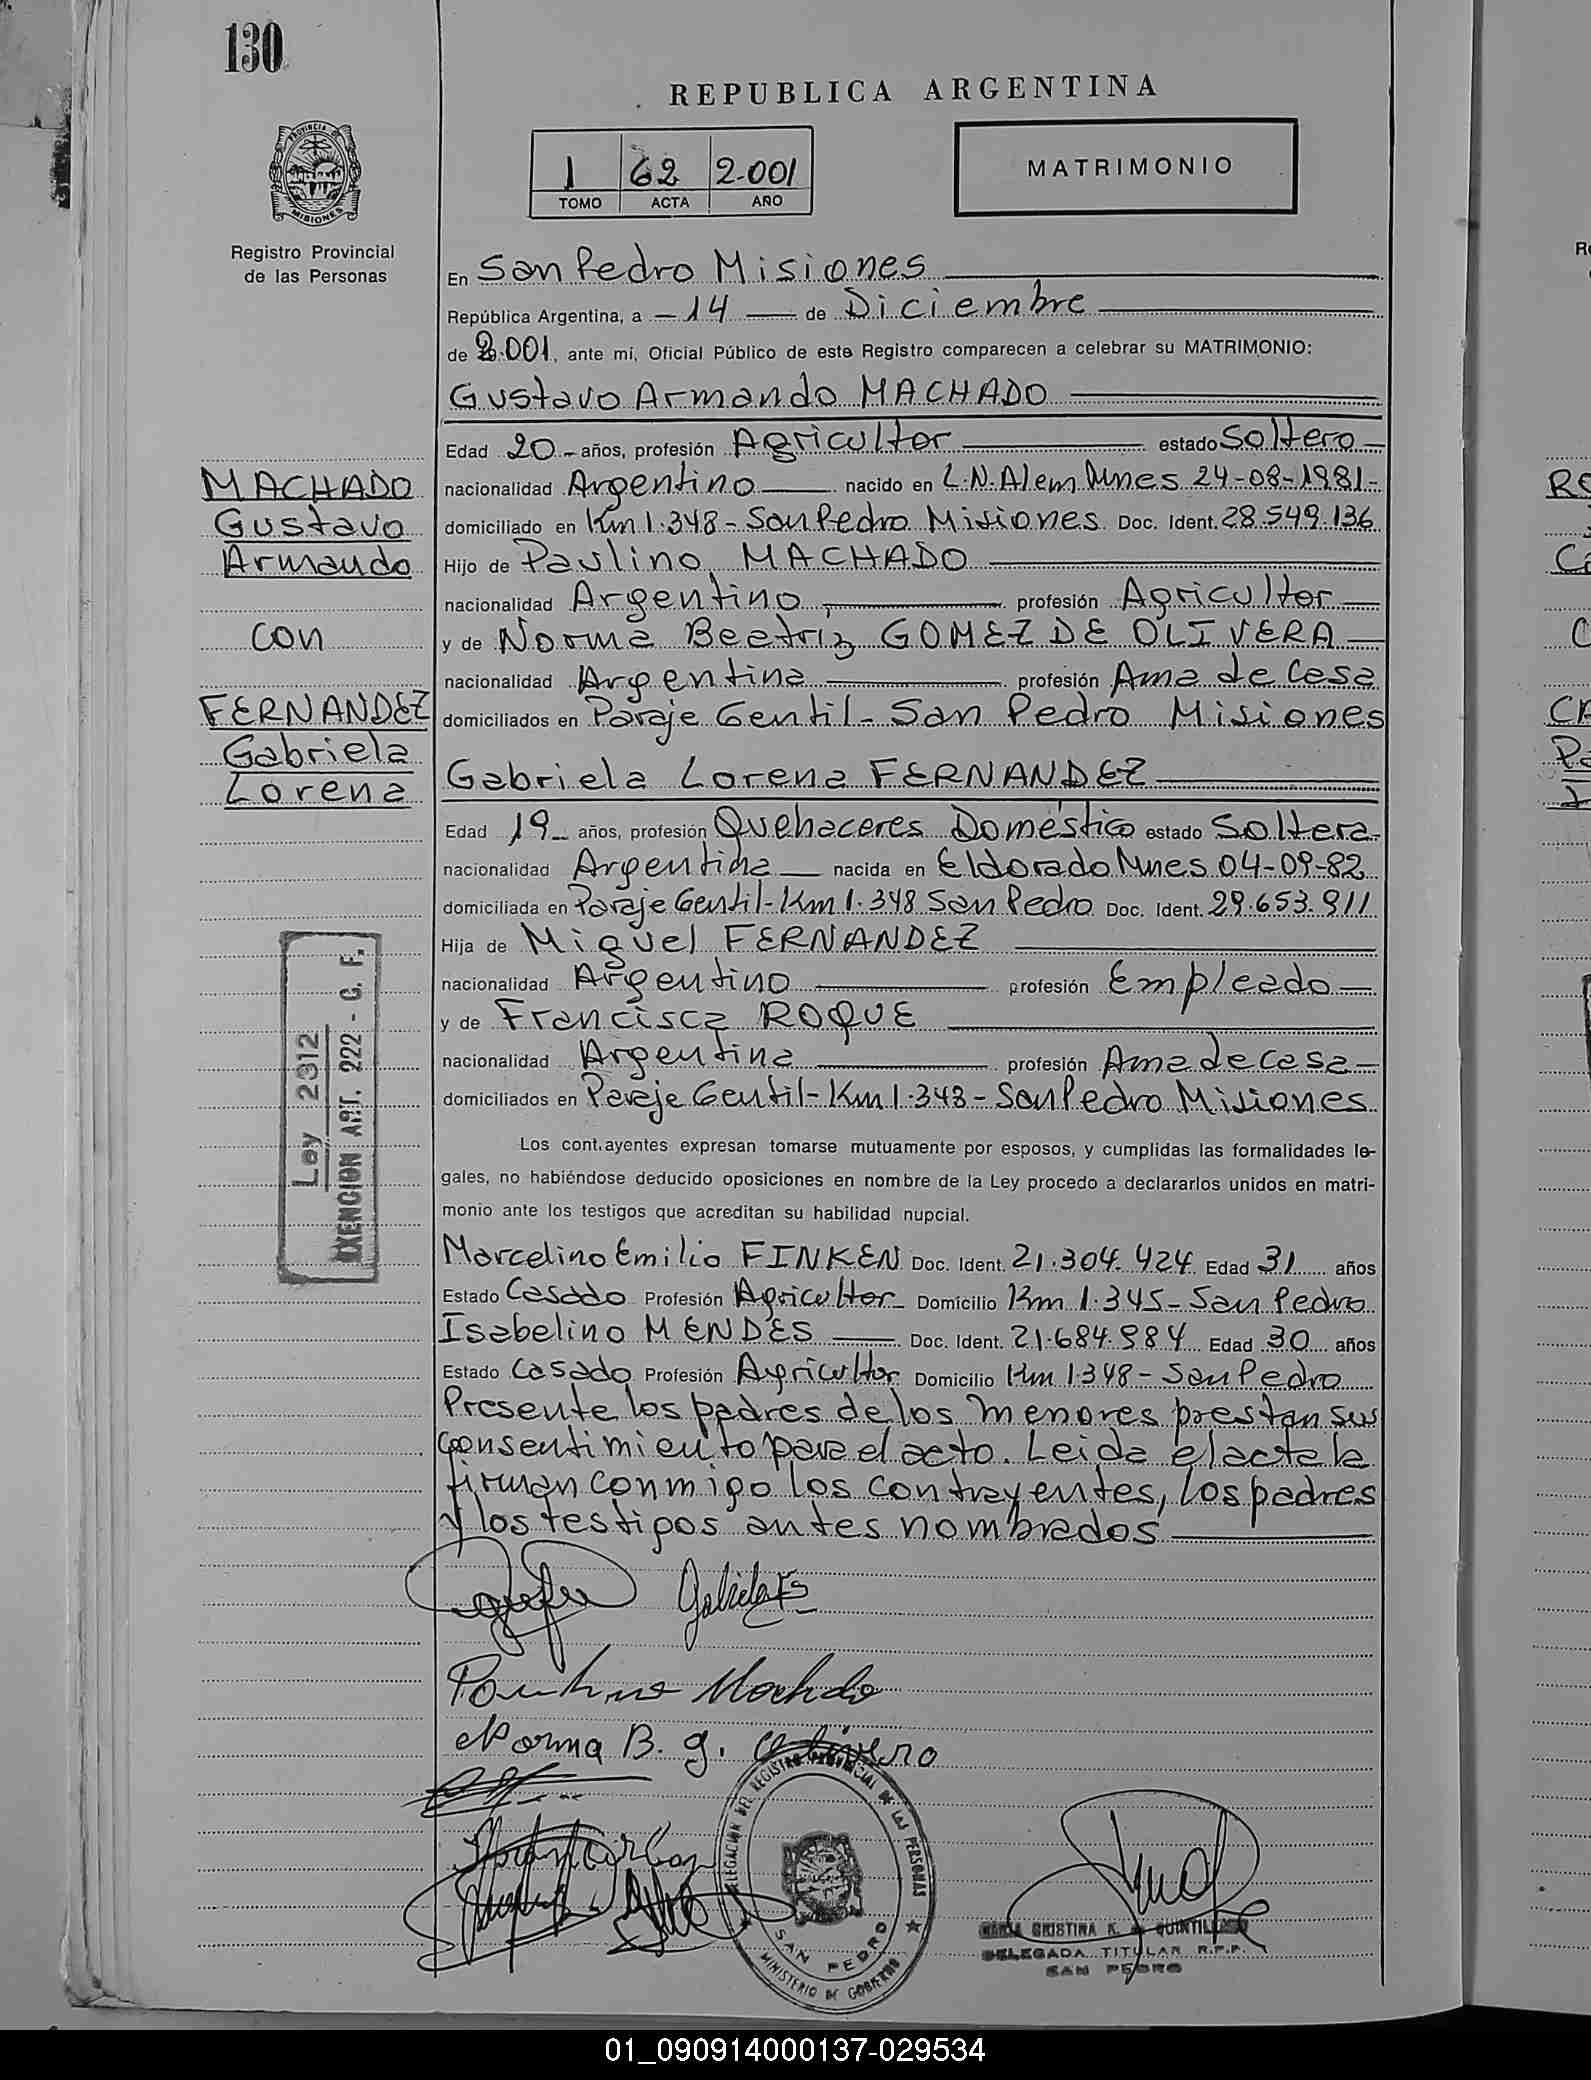 130
REPUBLICA ARGENTINA
1 62 2.001
TOMO ACTA AÑO
MATRIMONIO
PROVINCIA DE MISIONES
Registro Provincial
de las Personas
En San Pedro Misiones
República Argentina, a 14 de Diciembre
de 2.001, ante mí, Oficial Público de este Registro comparecen a celebrar su MATRIMONIO:
Gustavo Armando MACHADO
Edad 20 años, profesión Agricultor estado Soltero
nacionalidad Argentino nacido en L.N.Alem Mnes 24-08-1981-
domiciliado en Km 1.348 - San Pedro Misiones Doc. Ident. 28.549.136
Hijo de Paulino MACHADO
nacionalidad Argentino profesión Agricultor
y de Norma Beatriz GOMEZ DE OLIVERA
nacionalidad Argentina profesión Ama de Casa
domiciliados en Paraje Gentil - San Pedro Misiones
MACHADO
Gustavo
Armando
con
FERNANDEZ
Gabriela
Lorena
Gabriela Lorena FERNANDEZ
Edad 19 años, profesión Quehaceres Doméstico estado Soltera
nacionalidad Argentina nacida en Eldorado Mnes 04-09-82
domiciliada en Paraje Gentil - Km 1.348 San Pedro Doc. Ident. 29.653.911
Hija de Miguel FERNANDEZ
nacionalidad Argentino profesión Empleado
y de Francisca ROQUE
nacionalidad Argentina profesión Ama de casa
domiciliados en Paraje Gentil - Km 1.343 - San Pedro Misiones
Ley 2312
EXENCION ART. 222 - C. F.
Los cont.ayentes expresan tomarse mutuamente por esposos, y cumplidas las formalidades le-
gales, no habiéndose deducido oposiciones en nombre de la Ley procedo a declararlos unidos en matri-
monio ante los testigos que acreditan su habilidad nupcial.
Marcelino Emilio FINKEN Doc. Ident. 21.304.424 Edad 31 años
Estado Casado Profesión Agricultor Domicilio Km 1.345 - San Pedro
Isabelino MENDES Doc. Ident. 21.684.984 Edad 30 años
Estado Casado Profesión Agricultor Domicilio Km 1.348 - San Pedro
Presente los padres de los menores prestan sus
consentimiento para el acto. Leida el acta la
firman conmigo los contrayentes, los padres
y los testigos antes nombrados
Gabriela F
Paulino Machado
Norma B. g. Olivera
DELEGACION DEL REGISTRO PROVINCIAL DE LAS PERSONAS
SAN PEDRO
MINISTERIO DE GOBIERNO
MARIA CRISTINA K. de QUINTILLAN
DELEGADA TITULAR R.P.P.
SAN PEDRO
01_090914000137-029534